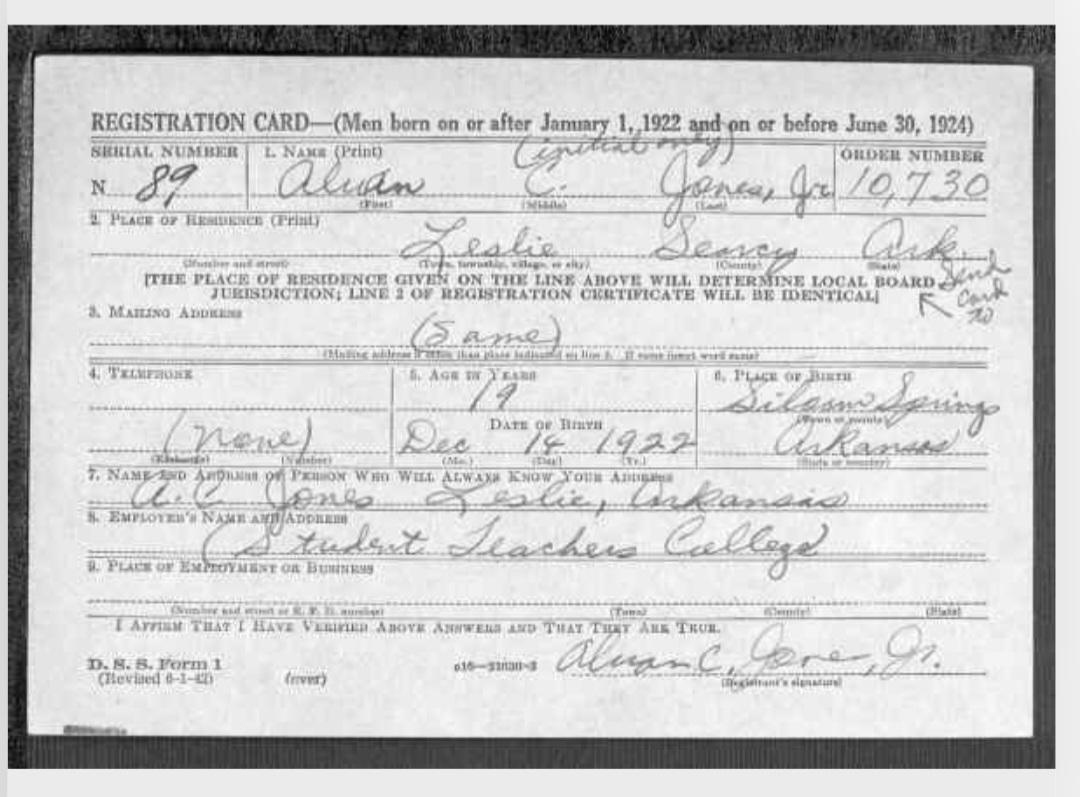 REGISTRATION CARD—(Men born on or after January 1, 1922 and on or before June 30, 1924)
SERIAL NUMBER 1. NAME (Print) (initial only) ORDER NUMBER
N 89 Alvan C. Jones, Jr. 10,730
(First) (Middle) (Last)
2. PLACE OF RESIDENCE (Print)
Leslie Searcy Ark.
(Number and street) (Town, township, village, or city) (County) (State)
[THE PLACE OF RESIDENCE GIVEN ON THE LINE ABOVE WILL DETERMINE LOCAL BOARD Send
JURISDICTION; LINE 2 OF REGISTRATION CERTIFICATE WILL BE IDENTICAL] Card
to
3. MAILING ADDRESS
(Same)
(Mailing address if other than place indicated on line 2. If same insert word same)
4. TELEPHONE 5. AGE IN YEARS 6. PLACE OF BIRTH
19 Siloam Springs
DATE OF BIRTH (Town or county)
(None) Dec 14 1922 Arkansas
(Exchange) (Number) (Mo.) (Day) (Yr.) (State or country)
7. NAME AND ADDRESS OF PERSON WHO WILL ALWAYS KNOW YOUR ADDRESS
A. C. Jones Leslie, Arkansas
8. EMPLOYER'S NAME AND ADDRESS
(Student Teachers College
9. PLACE OF EMPLOYMENT OR BUSINESS
(Number and street or R. F. D. number) (Town) (County) (State)
I AFFIRM THAT I HAVE VERIFIED ABOVE ANSWERS AND THAT THEY ARE TRUE.
D. S. S. Form 1 Alvan C. Jones, Jr.
(Revised 6-1-42) (over) (Registrant's signature)